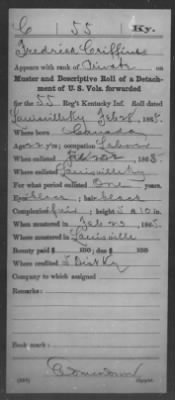 C | 55 | Ky.
Fredrick Griffin
Appears with rank of Private on
Muster and Descriptive Roll of a Detach-
ment of U. S. Vols. forwarded
for the 55 Reg't Kentucky Inf. Roll dated
Louisville Ky Feb 28, 1865.
Where born Canada
Age 22 y'rs; occupation Laborer
When enlisted Feb 22, 1865.
Where enlisted Louisville Ky
For what period enlisted One years.
Eyes ; hair Black
Complexion Fair; height 5 ft. 10 in.
When mustered in Feb 23, 1865.
Where mustered in Louisville
Bounty paid $ 100; due $ 100
Where credited 5 Dist Ky
Company to which assigned
Remarks:
Book mark:
Copyist.